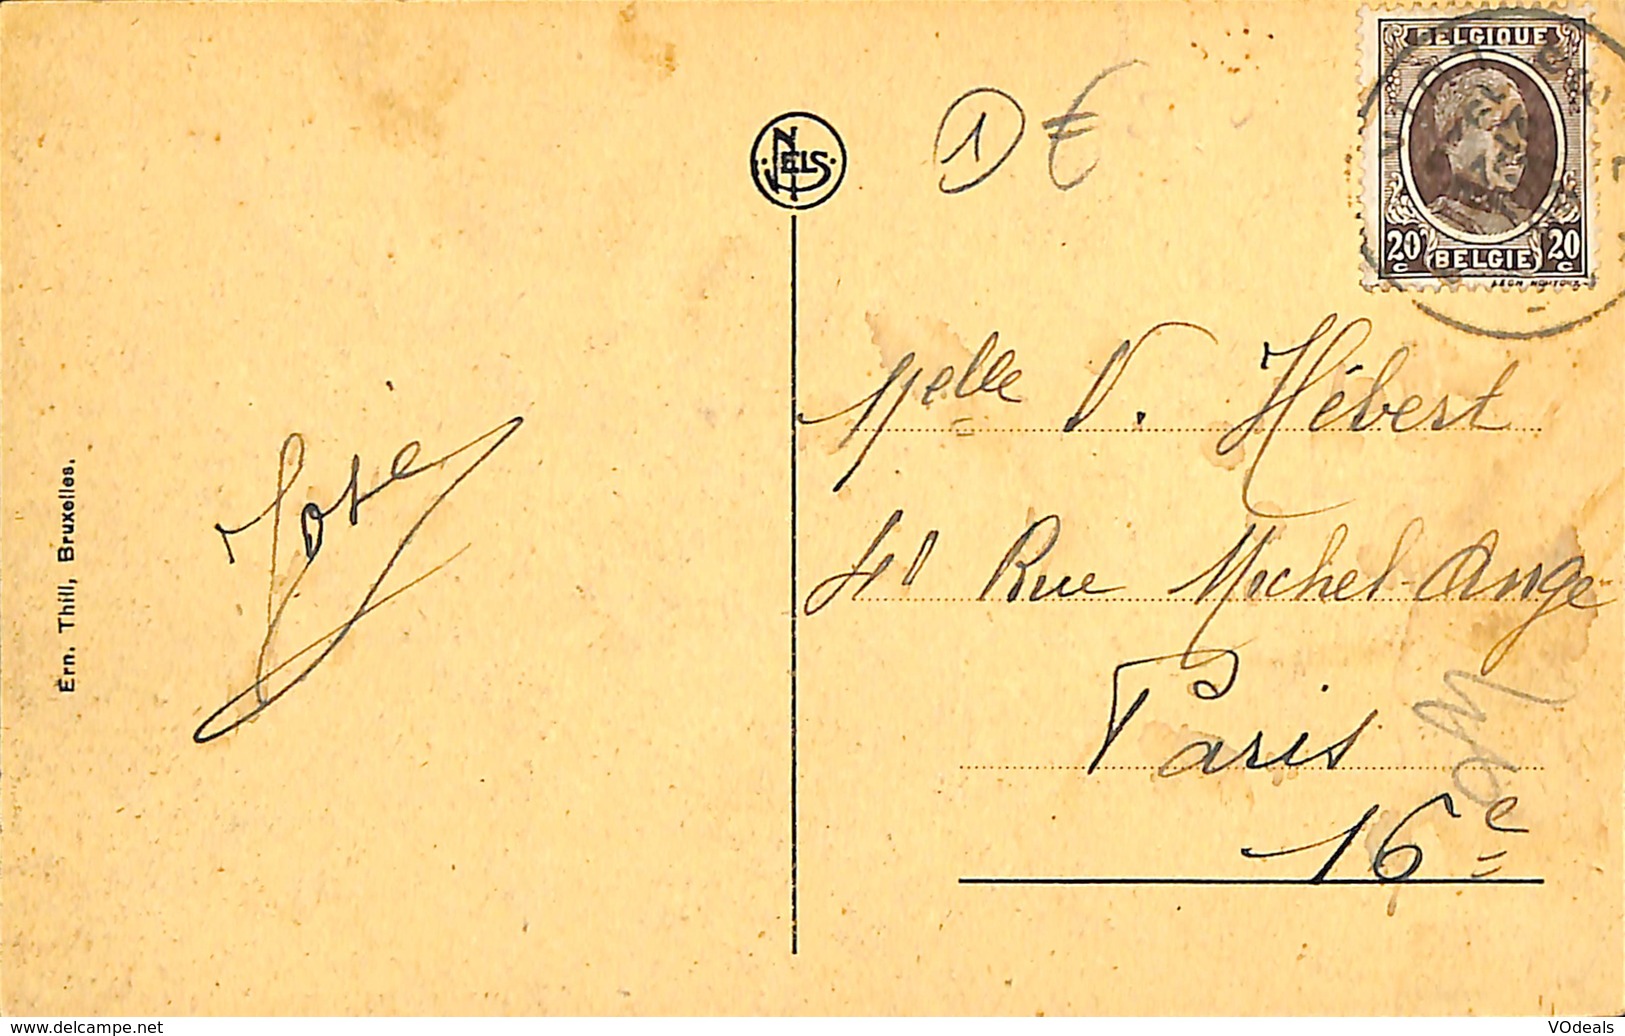 BELGIQUE
20 c 20 c
BELGIË
NELS
1 €
Melle V. Hébert
41 Rue Michel-Ange
Paris
16e
José
Ern. Thill, Bruxelles.
www.delcampe.net
VOdeals